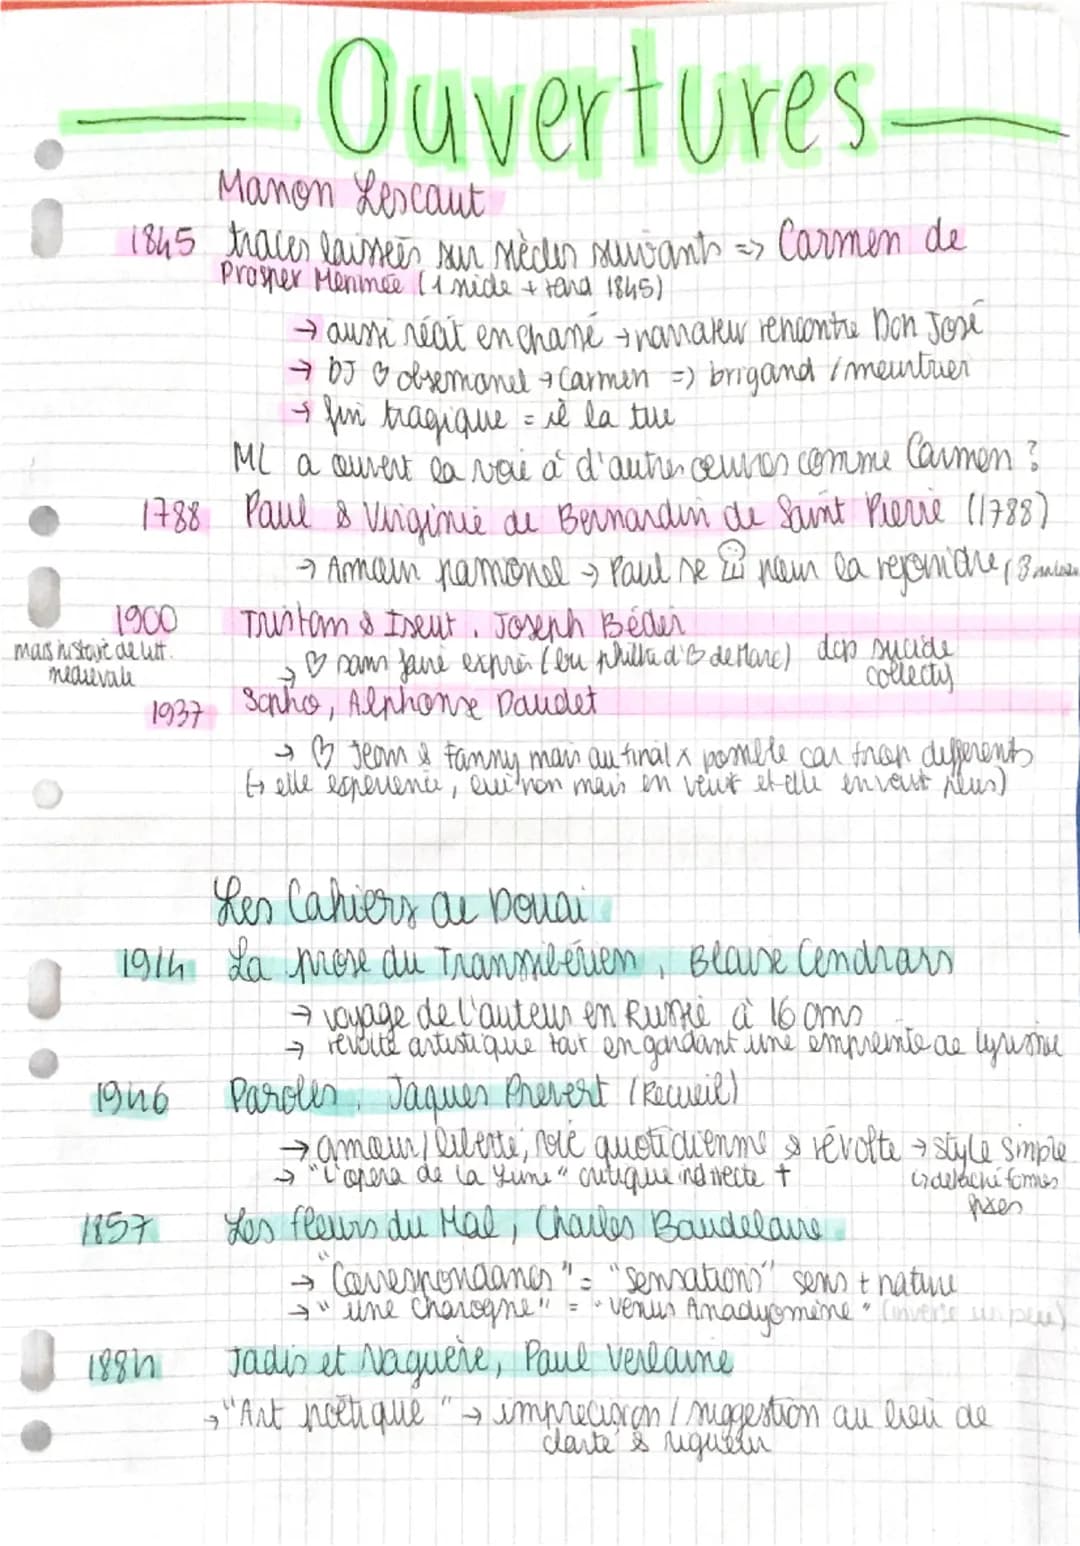 Ouvertures
Manon Lescaut
1845 traces laissées sur siècles suivants => Carmen de
Prosper Merimée (1 siècle + tard 1845)
→ aussi récit enchassé → narrateur rencontre Don José
→ DJ ♡ obsessionnel → Carmen => brigand / meurtrier
→ fin tragique = il la tue
ML a ouvert la voie à d'autres œuvres comme Carmen ?
1788 Paul & Virginie de Bernardin de Saint Pierre (1788)
→ Amour passionel → Paul se pour la rejoindre
1900 Tristan & Iseut, Joseph Bédier
mais histoire de litt. médievale
→ ♡ sans faire exprès (bu philtre d'♡ de Marc) dcp suicide collectif
1937 Sapho, Alphonse Daudet
→ ♡ Jean & Fanny mais au final x possible car trop différents
(↳ elle experience, lui non mais en veut et elle en veut plus)
Les Cahiers de Douai
1914 La prose du Transsibérien, Blaise Cendrars
→ voyage de l'auteur en Russie à 16 ans
→ révolte artistique tout en gardant une empreinte de lyrisme
1946 Paroles, Jaques Prevert (Recueil)
→ amour/liberté, vie quotidienne & révolte → style simple
→ "L'opera de la lune" critique indirecte + ↳ détaché formes fixes
1857 Les fleurs du Mal, Charles Baudelaire
→ "Correspondances" = "Sensations" sens + nature
→ "une charogne" = "Venus Anadyomène" (inverse un peu)
1884 Jadis et Naguère, Paul Verlaine
→ "Art poétique" → imprecision / suggestion au lieu de
clarté & rigueur